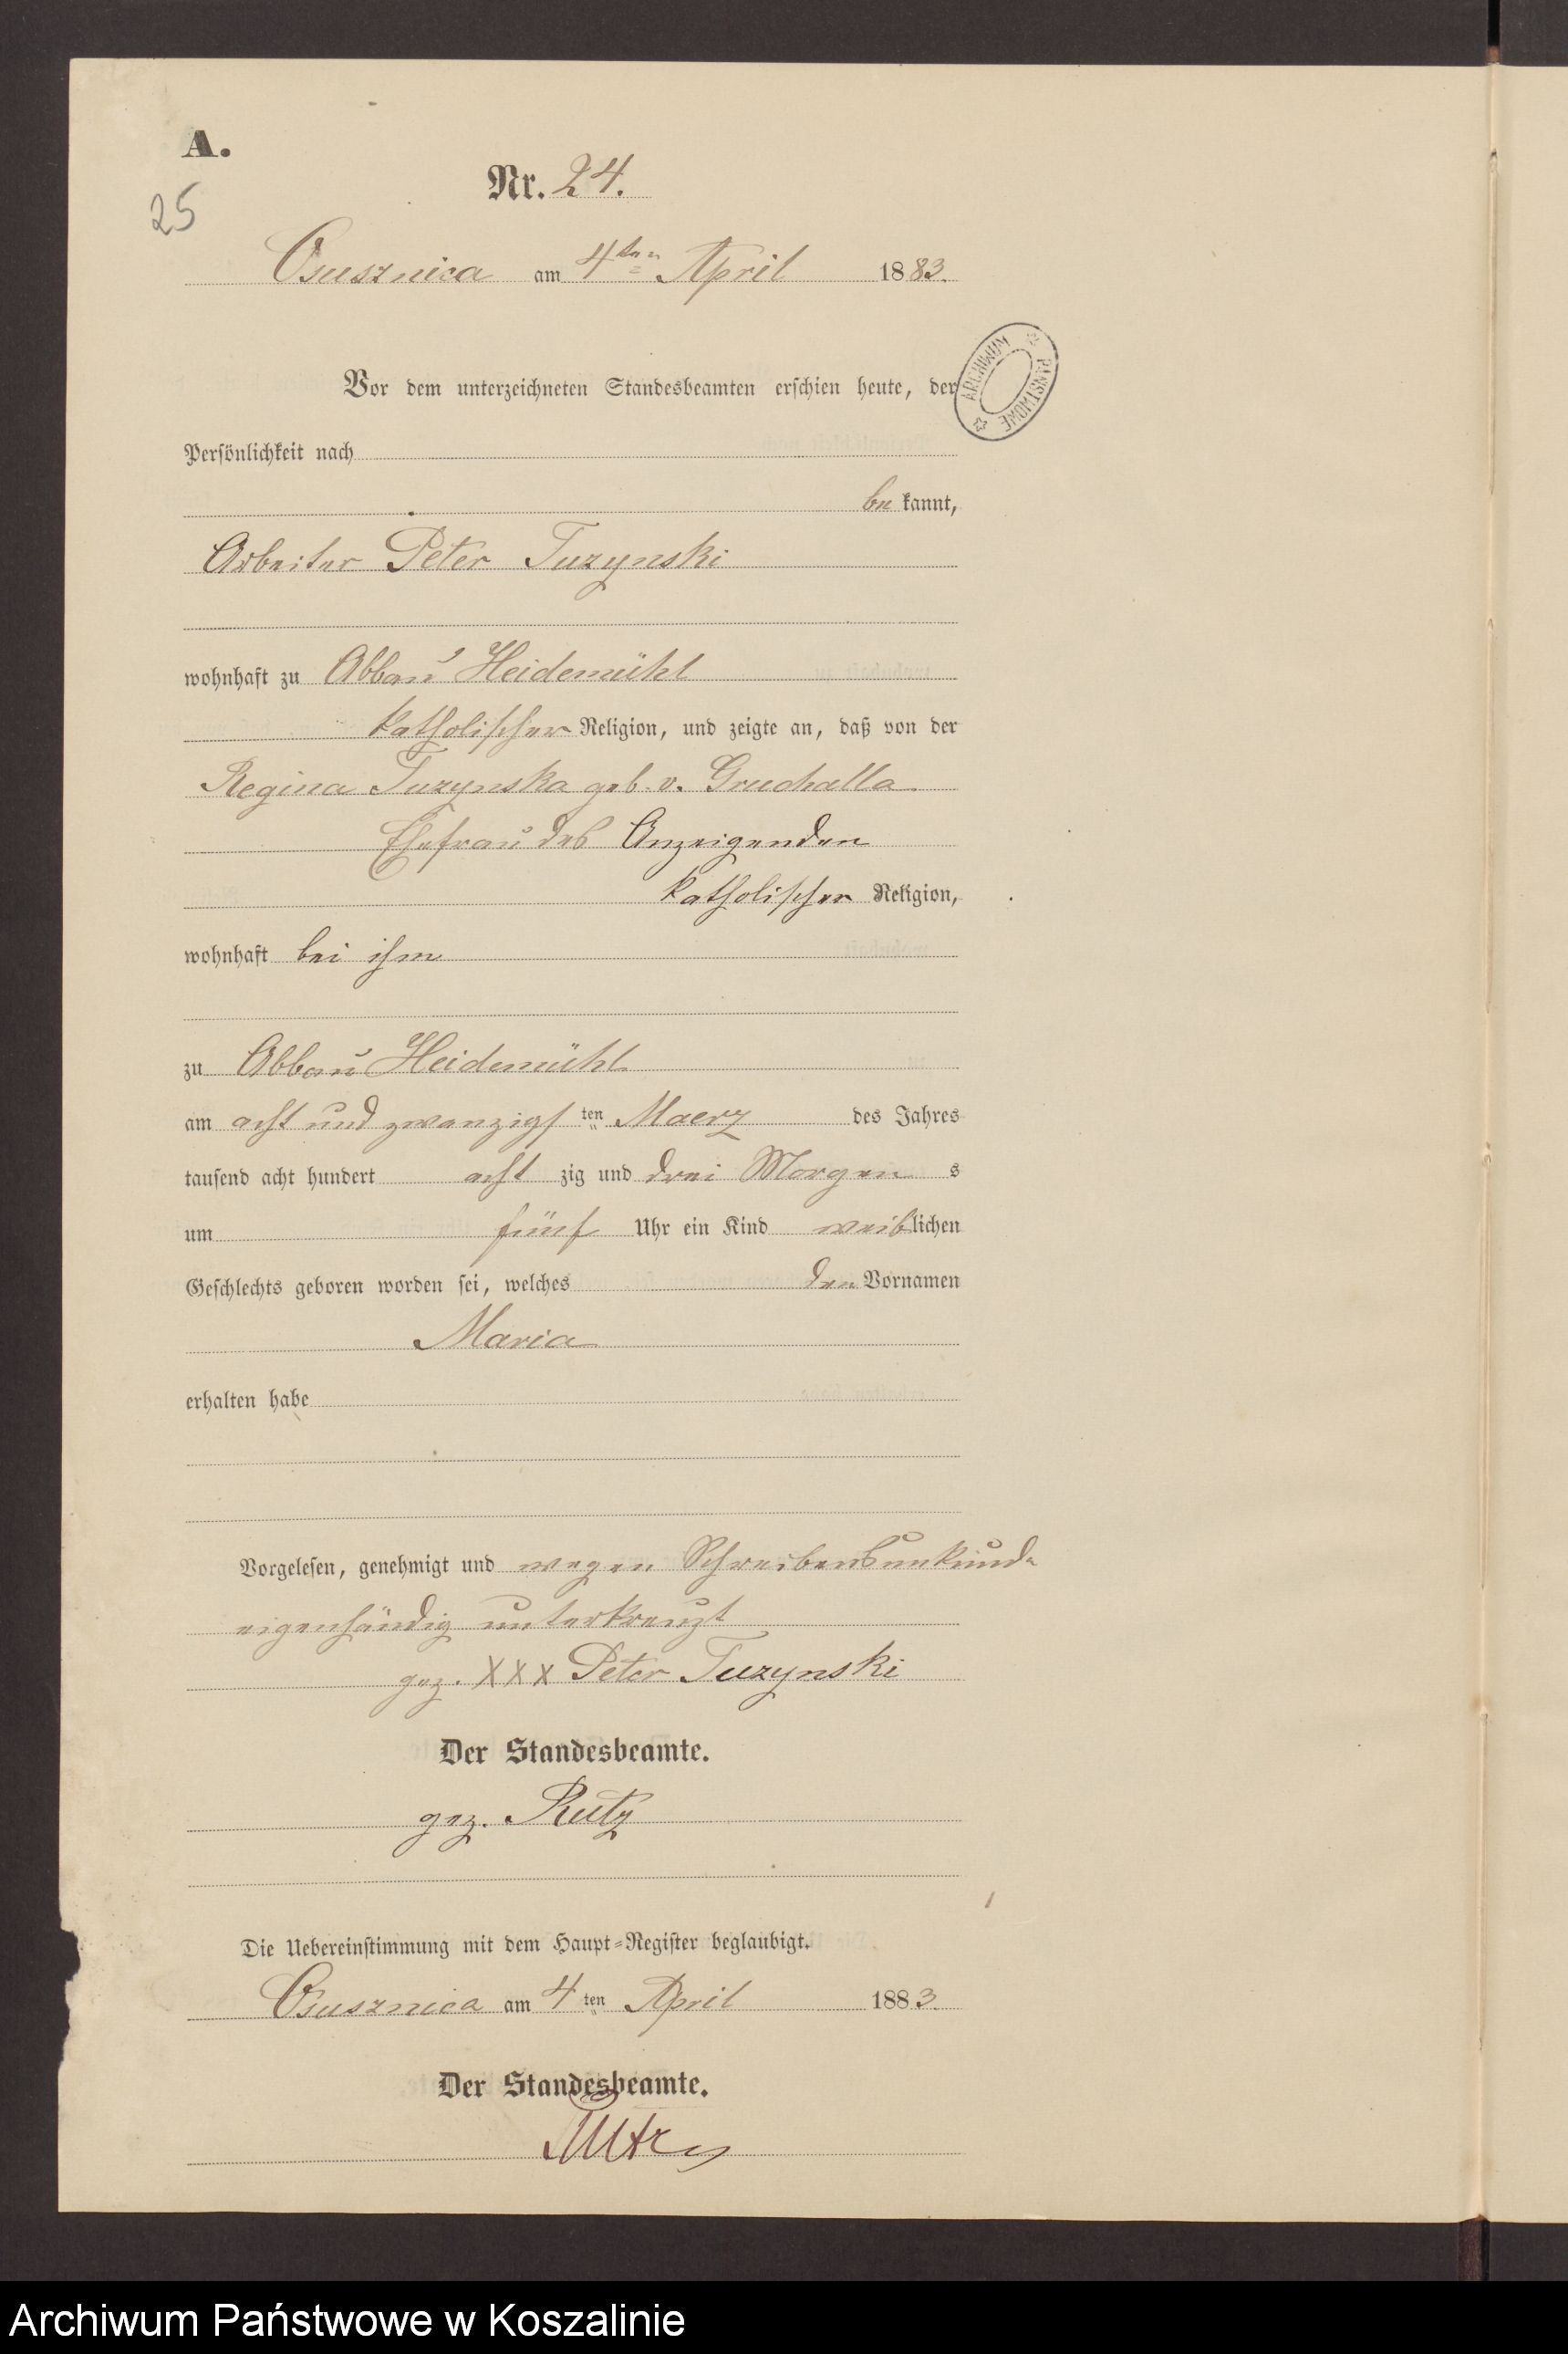 A.
Nr. 24.
25
Osusznica am 4ten April 1883.
Vor dem unterzeichneten Standesbeamten erschien heute, der
Persönlichkeit nach
be kannt,
Arbeiter Peter Tuzynski
wohnhaft zu Abbau Heidemühl
katholischer Religion, und zeigte an, daß von der
Regina Tuzynska geb. v. Gruchalla
Ehefrau des Anzeigenden
katholischer Religion,
wohnhaft bei ihm
zu Abbau Heidemühl
am acht und zwanzigsten Maerz des Jahres
tausend acht hundert acht zig und drei Morgens
um fünf Uhr ein Kind weiblichen
Geschlechts geboren worden sei, welches den Vornamen
Maria
erhalten habe
Vorgelesen, genehmigt und wegen Schreibensunkunde
eigenhändig unterkreuzt
gez. XXX Peter Tuzynski
Der Standesbeamte.
gez. Rutz
Die Uebereinstimmung mit dem Haupt-Register beglaubigt.
Osusznica am 4ten April 1883.
Der Standesbeamte.
Rutz
ARCHIWUM PAŃSTWOWE
Archiwum Państwowe w Koszalinie